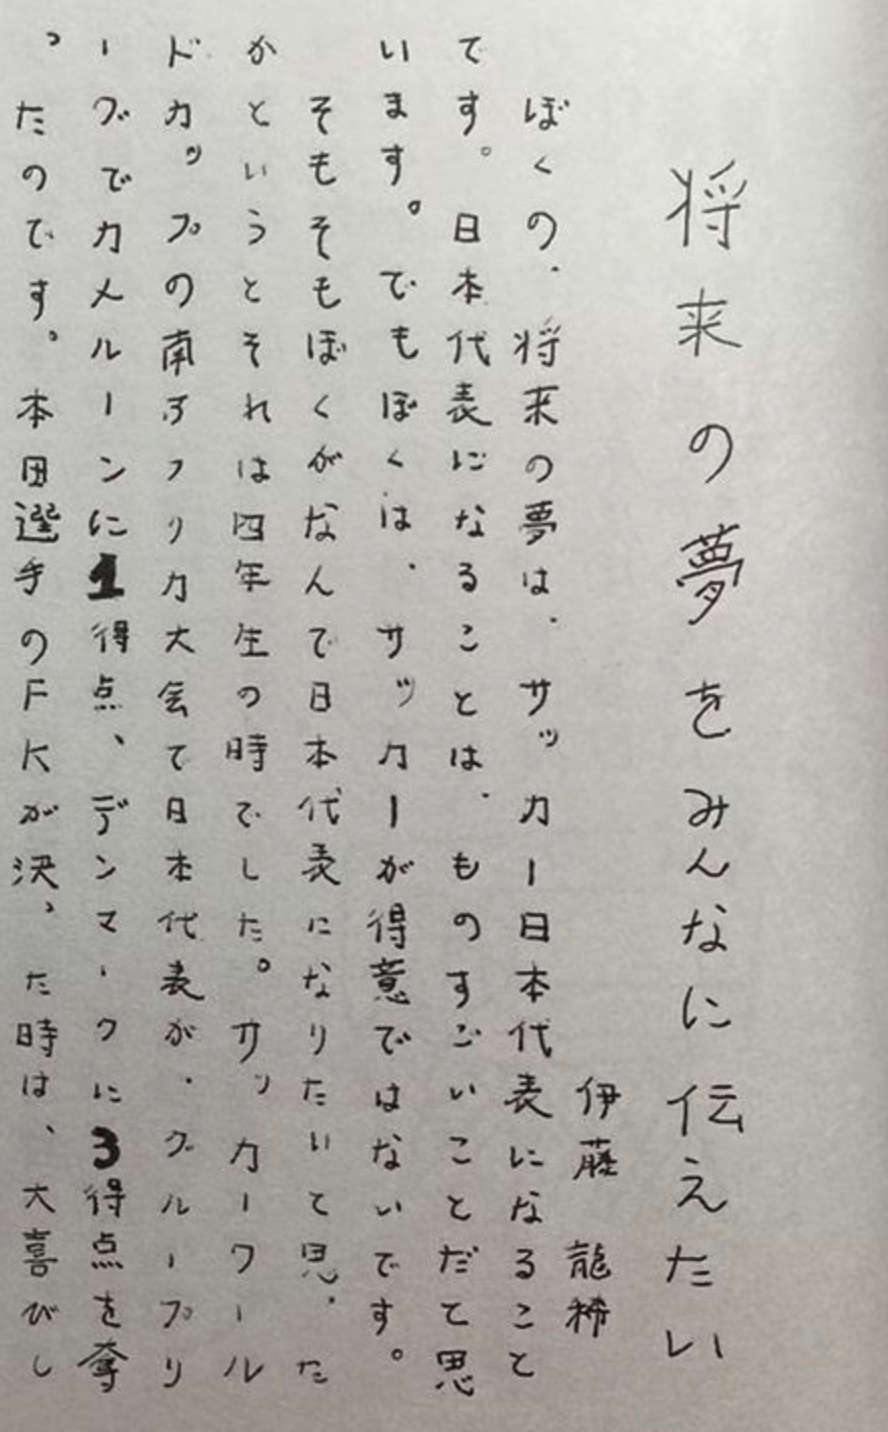 将来の夢をみんなに伝えたい
伊藤 龍稀
ぼくの、将来の夢は、サッカー日本代表になること
です。日本代表になることは、ものすごいことだて思
います。でもぼくは、サッカーが得意ではないです。
そもそもぼくがなんで日本代表になりたいと思った
かというとそれは四年生の時でした。サッカーワール
ドカップの南アフリカ大会で日本代表が、グループリ
ーグでカメルーンに1得点、デンマークに3得点を奪
ったのです。本田選手のFKが決った時は、大喜びし